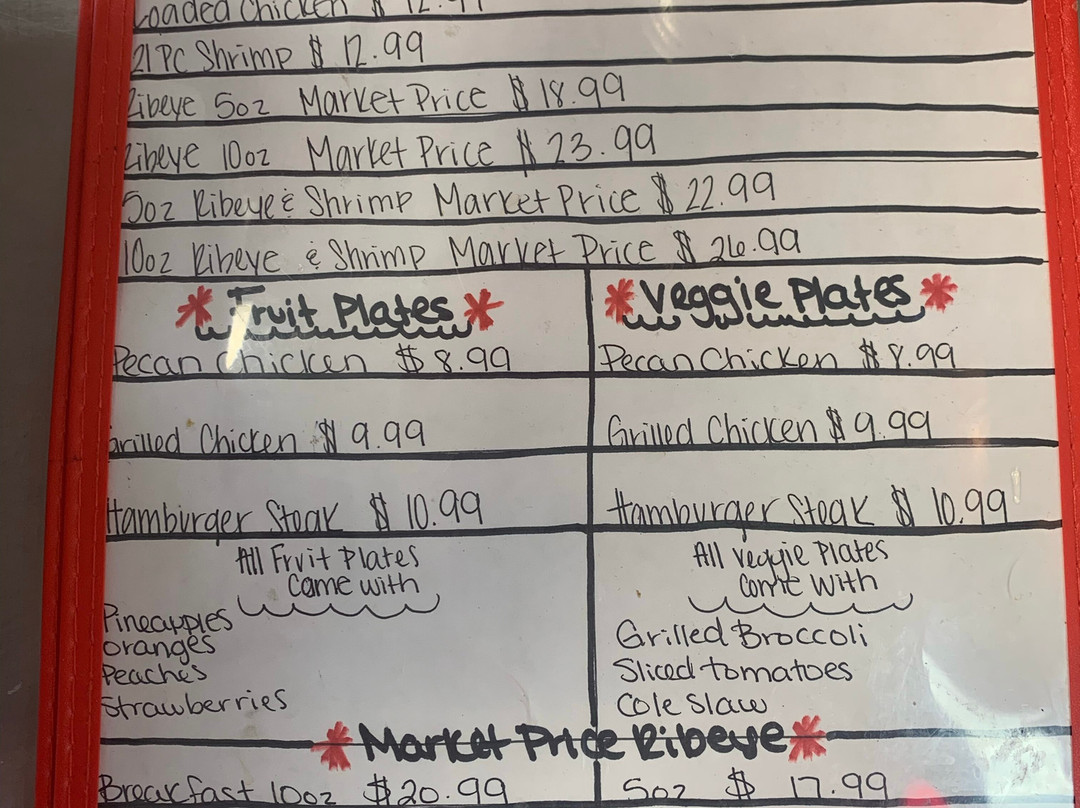 Loaded Chicken $ 12.
21 PC Shrimp $ 12.99
Ribeye 5oz Market Price $ 18.99
Ribeye 10oz Market Price $ 23.99
5oz Ribeye & Shrimp Market Price $ 22.99
10oz Ribeye & Shrimp Market Price $ 26.99
* Fruit Plates *
Pecan Chicken $ 8.99
Grilled Chicken $ 9.99
Hamburger Steak $ 10.99
All Fruit Plates
Came with
Pineapples
oranges
Peaches
Strawberries
* Veggie Plates *
Pecan Chicken $ 8.99
Grilled Chicken $ 9.99
Hamburger Steak $ 10.99
All Veggie Plates
Come With
Grilled Broccoli
Sliced tomatoes
Cole Slaw
* Market Price Ribeye *
Breakfast 10oz $ 20.99
5oz $ 17.99